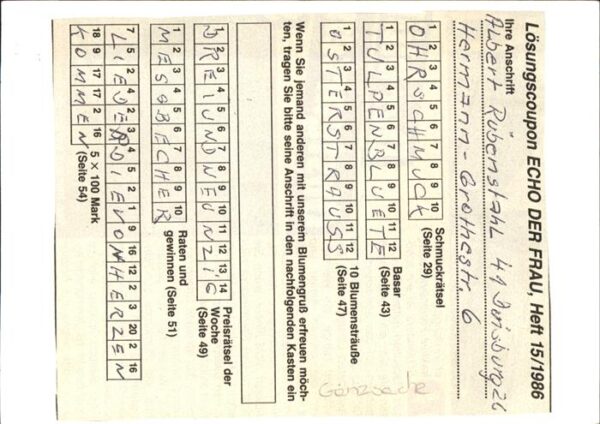 Lösungscoupon ECHO DER FRAU, Heft 15/1986
Ihre Anschrift
Albert Rübenstahl 41 Duisburg 26
Hermann-Grothestr. 6
1 2 3 4 5 6 7 8 9 10
OHRSCHMUCK
Schmuckrätsel
(Seite 29)
1 2 3 4 5 6 7 8 9 10 11 12
TULPENBLUETE
Basar
(Seite 43)
1 2 3 4 5 6 7 8 9 10 11 12
OSTERSTRAUSS
10 Blumensträuße
(Seite 47)
Wenn Sie jemand anderen mit unserem Blumengruß erfreuen möch-
ten, tragen Sie bitte seine Anschrift in den nachfolgenden Kasten ein
1 2 3 4 5 6 7 8 9 10 11 12 13 14
DREIUNDNEUNZIG
Preisrätsel der
Woche
(Seite 49)
1 2 3 4 5 6 7 8 9 10
MESSBECHER
Raten und
gewinnen (Seite 51)
7 5 2 4 2 3 4 5 2 1 9 16 12 2 3 20 2 16
LIEDERDIEVONHERZEN
18 9 17 17 2 16
KOMMEN
5 x 100 Mark
(Seite 54)